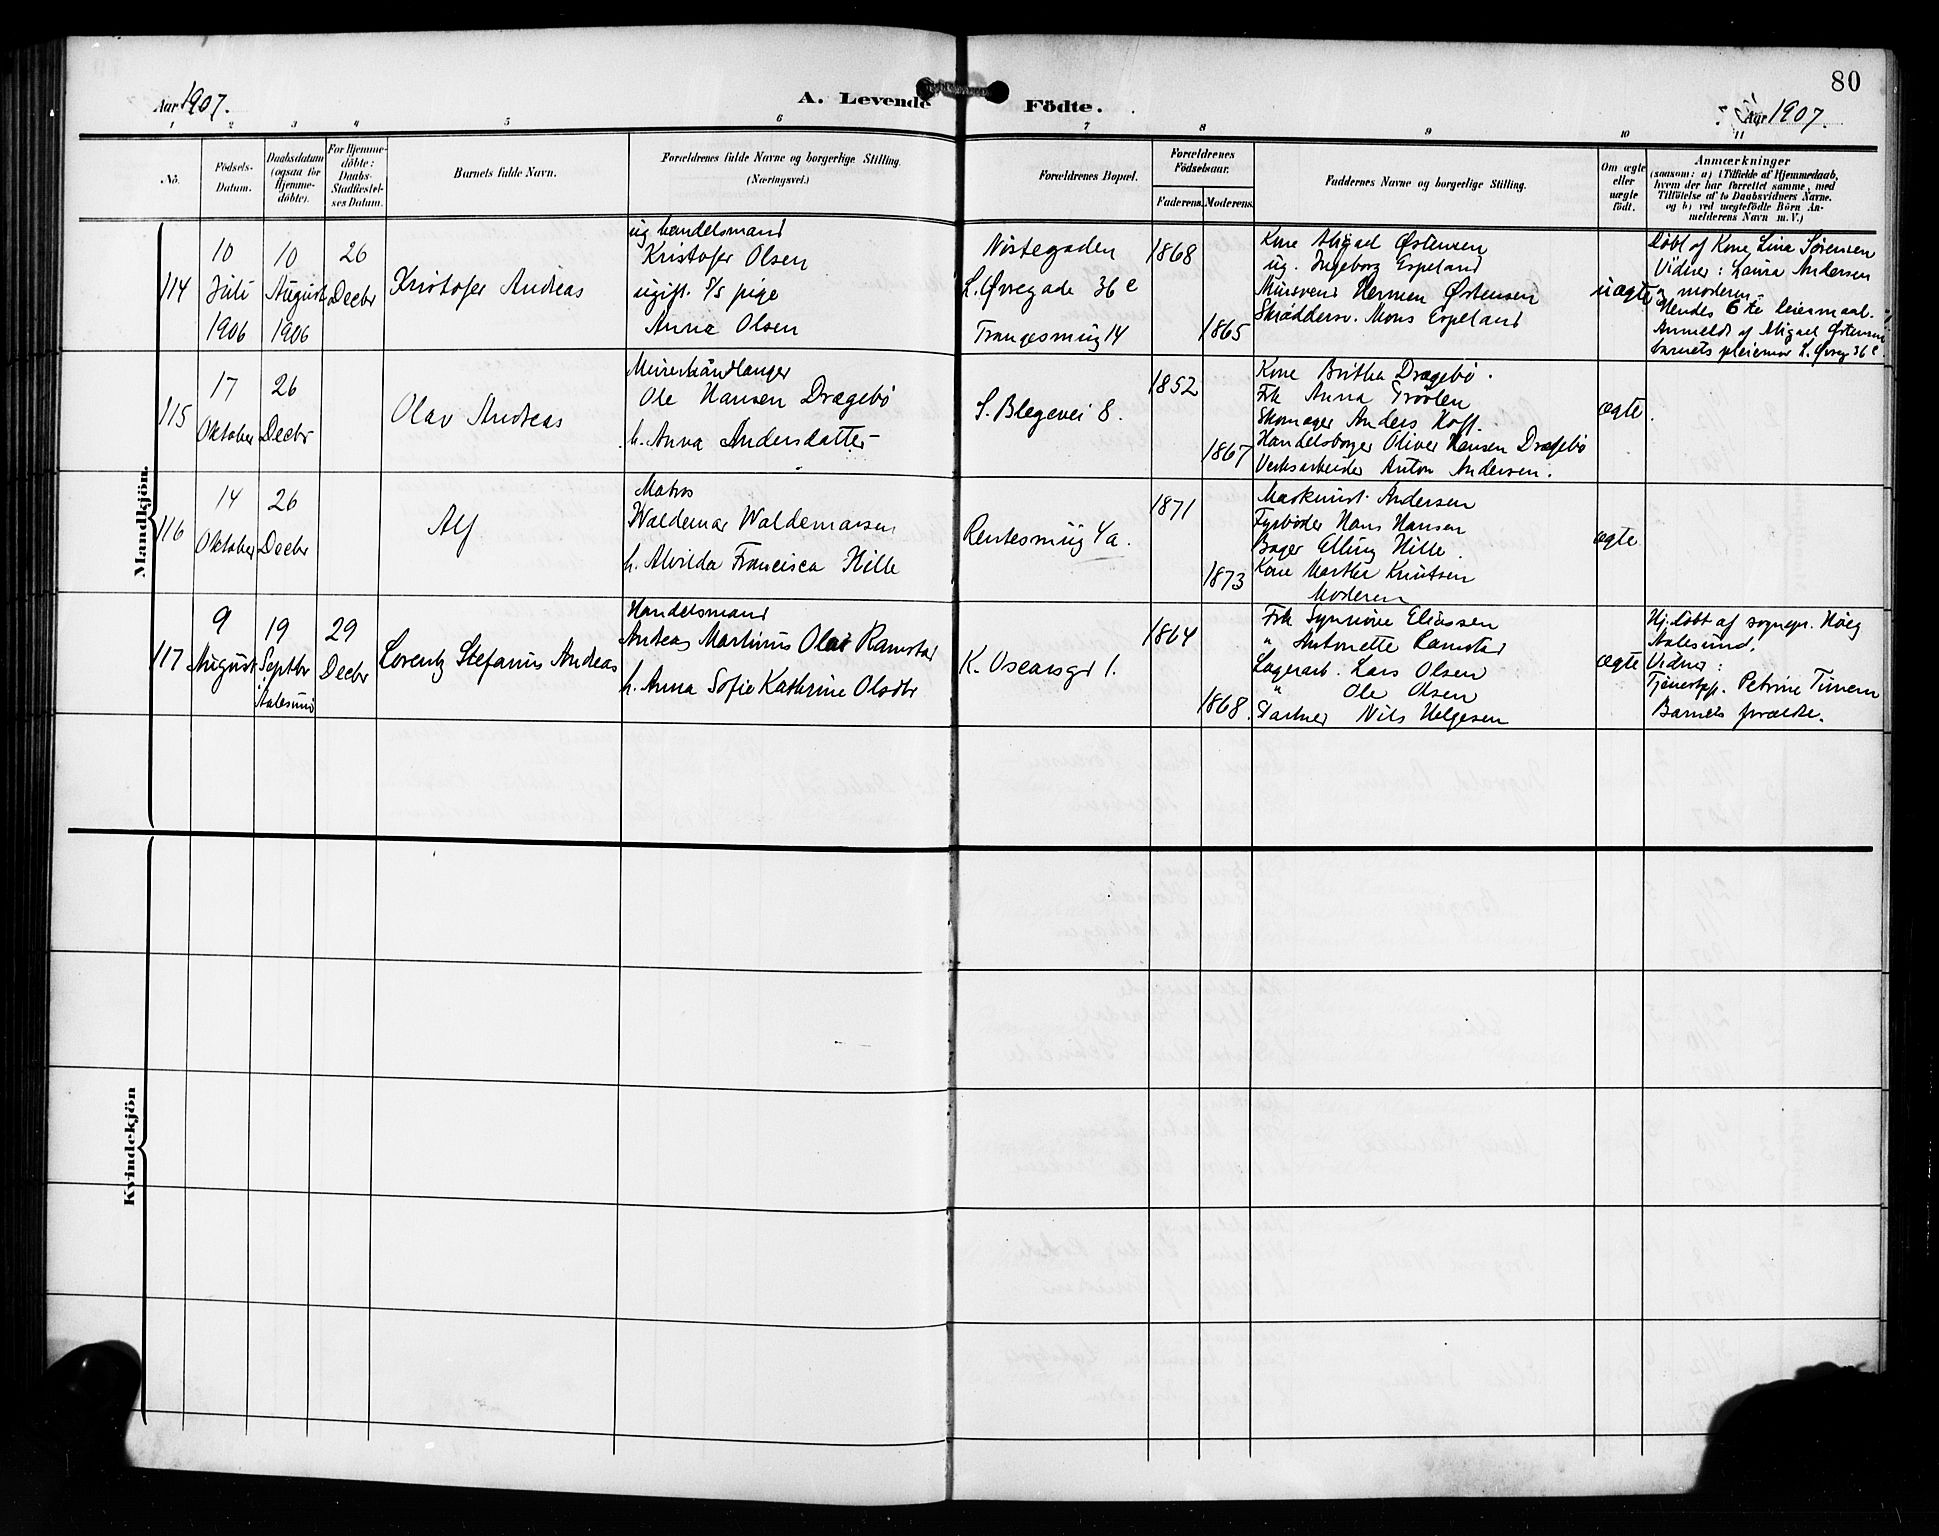 80
Aar 1907.
A. Levende Födte.
Aar 1907.
1 2 3 4 5 6 7 8 9 10 11
No.
Födsels-
Datum.
Daabsdatum
(ogsaa för
Hjemme-
döbte).
For Hjemme-
döbte:
Daabs-
Stadfæstel-
ses Datum.
Barnets fulde Navn.
Forældrenes fulde Navne og borgerlige Stilling.
(Næringsvei.)
Forældrenes Bopæl.
Forældrenes
Födselsaar.
Faderens. Moderens.
Faddernes Navne og borgerlige Stilling.
Om ægte
eller
uægte
födt.
Anmærkninger
(saasom: a) i Tilfælde af Hjemmedaab,
hvem der har forrettet samme, med
Tilföielse af to Daabsvidners Navne.
og b) ved uægtefödte Börn An-
melderens Navn m. V.)
Mandkjön.
114
10
Juli
1906
10
August
1906
26
Decbr
Kristofer Andreas
ug. handelsmand
Kristofer Olsen
ugift. pige
Anna Olsen
Nøstegaden
L. Øvregade 36 c
Trangesmug 14
1868
1865
Kone Abigael Østensen
ug. Ingeborg Espeland
Mursvend Herman Østensen
Skræddersv. Mons Espeland
uægte
Døbt af Kone Lina Sørensen
Vidner: Laura Andersen
& moderen.
Hendes 6te leiermaal.
Anmeldt af Abigael Østensen
barnets pleiemor L. Øvreg 36 c.
115
17
Oktober
26
Decbr
Olav Andreas
Murerhåndlanger
Ole Hansen Dragebø
h. Anna Andersdatter
S. Blegevei 8.
1852
1867
Kone Brithe Dragebø.
Frk Anna
Skomager Anders Hoff.
Handelsborger Oliver Hansen Dragebø
Verksarbeider Anton Andersen.
ægte.
116
14
Oktober
26
Decbr
Alf
Matros
Waldemar Waldemarsen
h. Alvilda Francisca Hille
Rentesmug 4a.
1871
1873
Maskinist. Andersen
Fyrbøder Hans Hansen
Bager Elling Hille.
Kone Marthe Knutsen
Moderen
ægte
117
9
August
19
Septbr
Aalesund
29
Decbr
Lorentz Stefanus Andreas
Handelsmand
Andreas Martinus Olai Ramstad
h. Anna Sofie Kathrine Olsdtr
K. Oscarsgt 1.
1864
1868.
Frk Synnøve Eliassen
" Antonette Ramstad
Lagerarb. Lars Olsen
" Ole Olsen
Gartner Nils Helgesen
ægte
Hj. døbt af sognepr. Høeg
Aalesund.
Vidner:
Tjenestpg. Petrine
Barnets forældre.
Kvindekjön